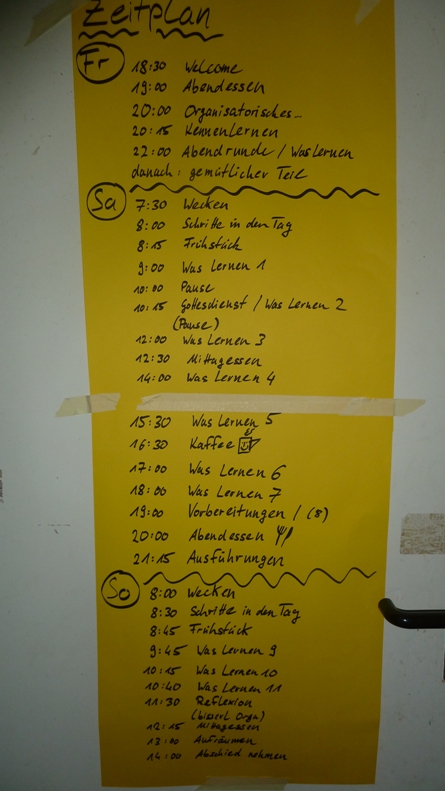 Zeitplan
Fr
18:30 Welcome
19:00 Abendessen
20:00 Organisatorisches...
20:15 Kennenlernen
22:00 Abendrunde / Was Lernen
danach: gemütlicher Teil
Sa
7:30 Wecken
8:00 Schritte in den Tag
8:15 Frühstück
9:00 Was Lernen 1
10:00 Pause
10:15 Gottesdienst / Was Lernen 2
(Pause)
12:00 Was Lernen 3
12:30 Mittagessen
14:00 Was Lernen 4
15:30 Was Lernen 5
16:30 Kaffee
17:00 Was Lernen 6
18:00 Was Lernen 7
19:00 Vorbereitungen / (8)
20:00 Abendessen
21:15 Ausführungen
So
8:00 Wecken
8:30 Schritte in den Tag
8:45 Frühstück
9:45 Was Lernen 9
10:15 Was Lernen 10
10:40 Was Lernen 11
11:30 Reflexion
(bisserl Orga)
12:15 Mittagessen
13:00 Aufräumen
14:00 Abschied nehmen